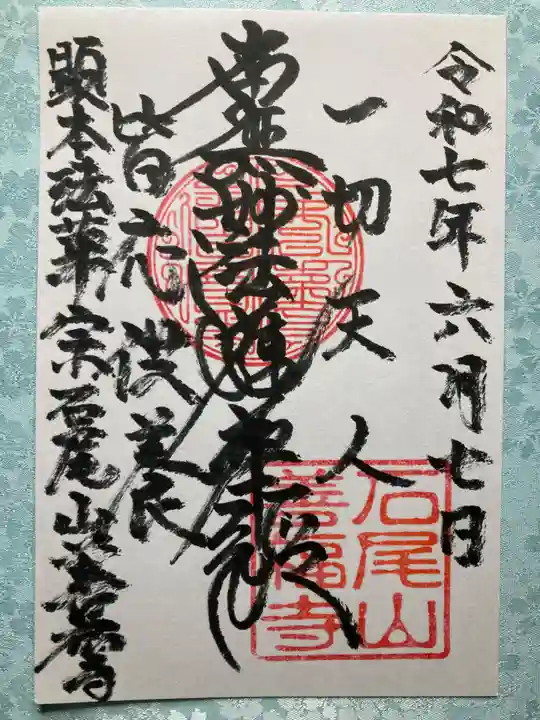 令和七年六月七日
一切天人
南無妙法蓮華経
皆応供養
顕本法華宗石尾山善福寺
石尾山
善福寺